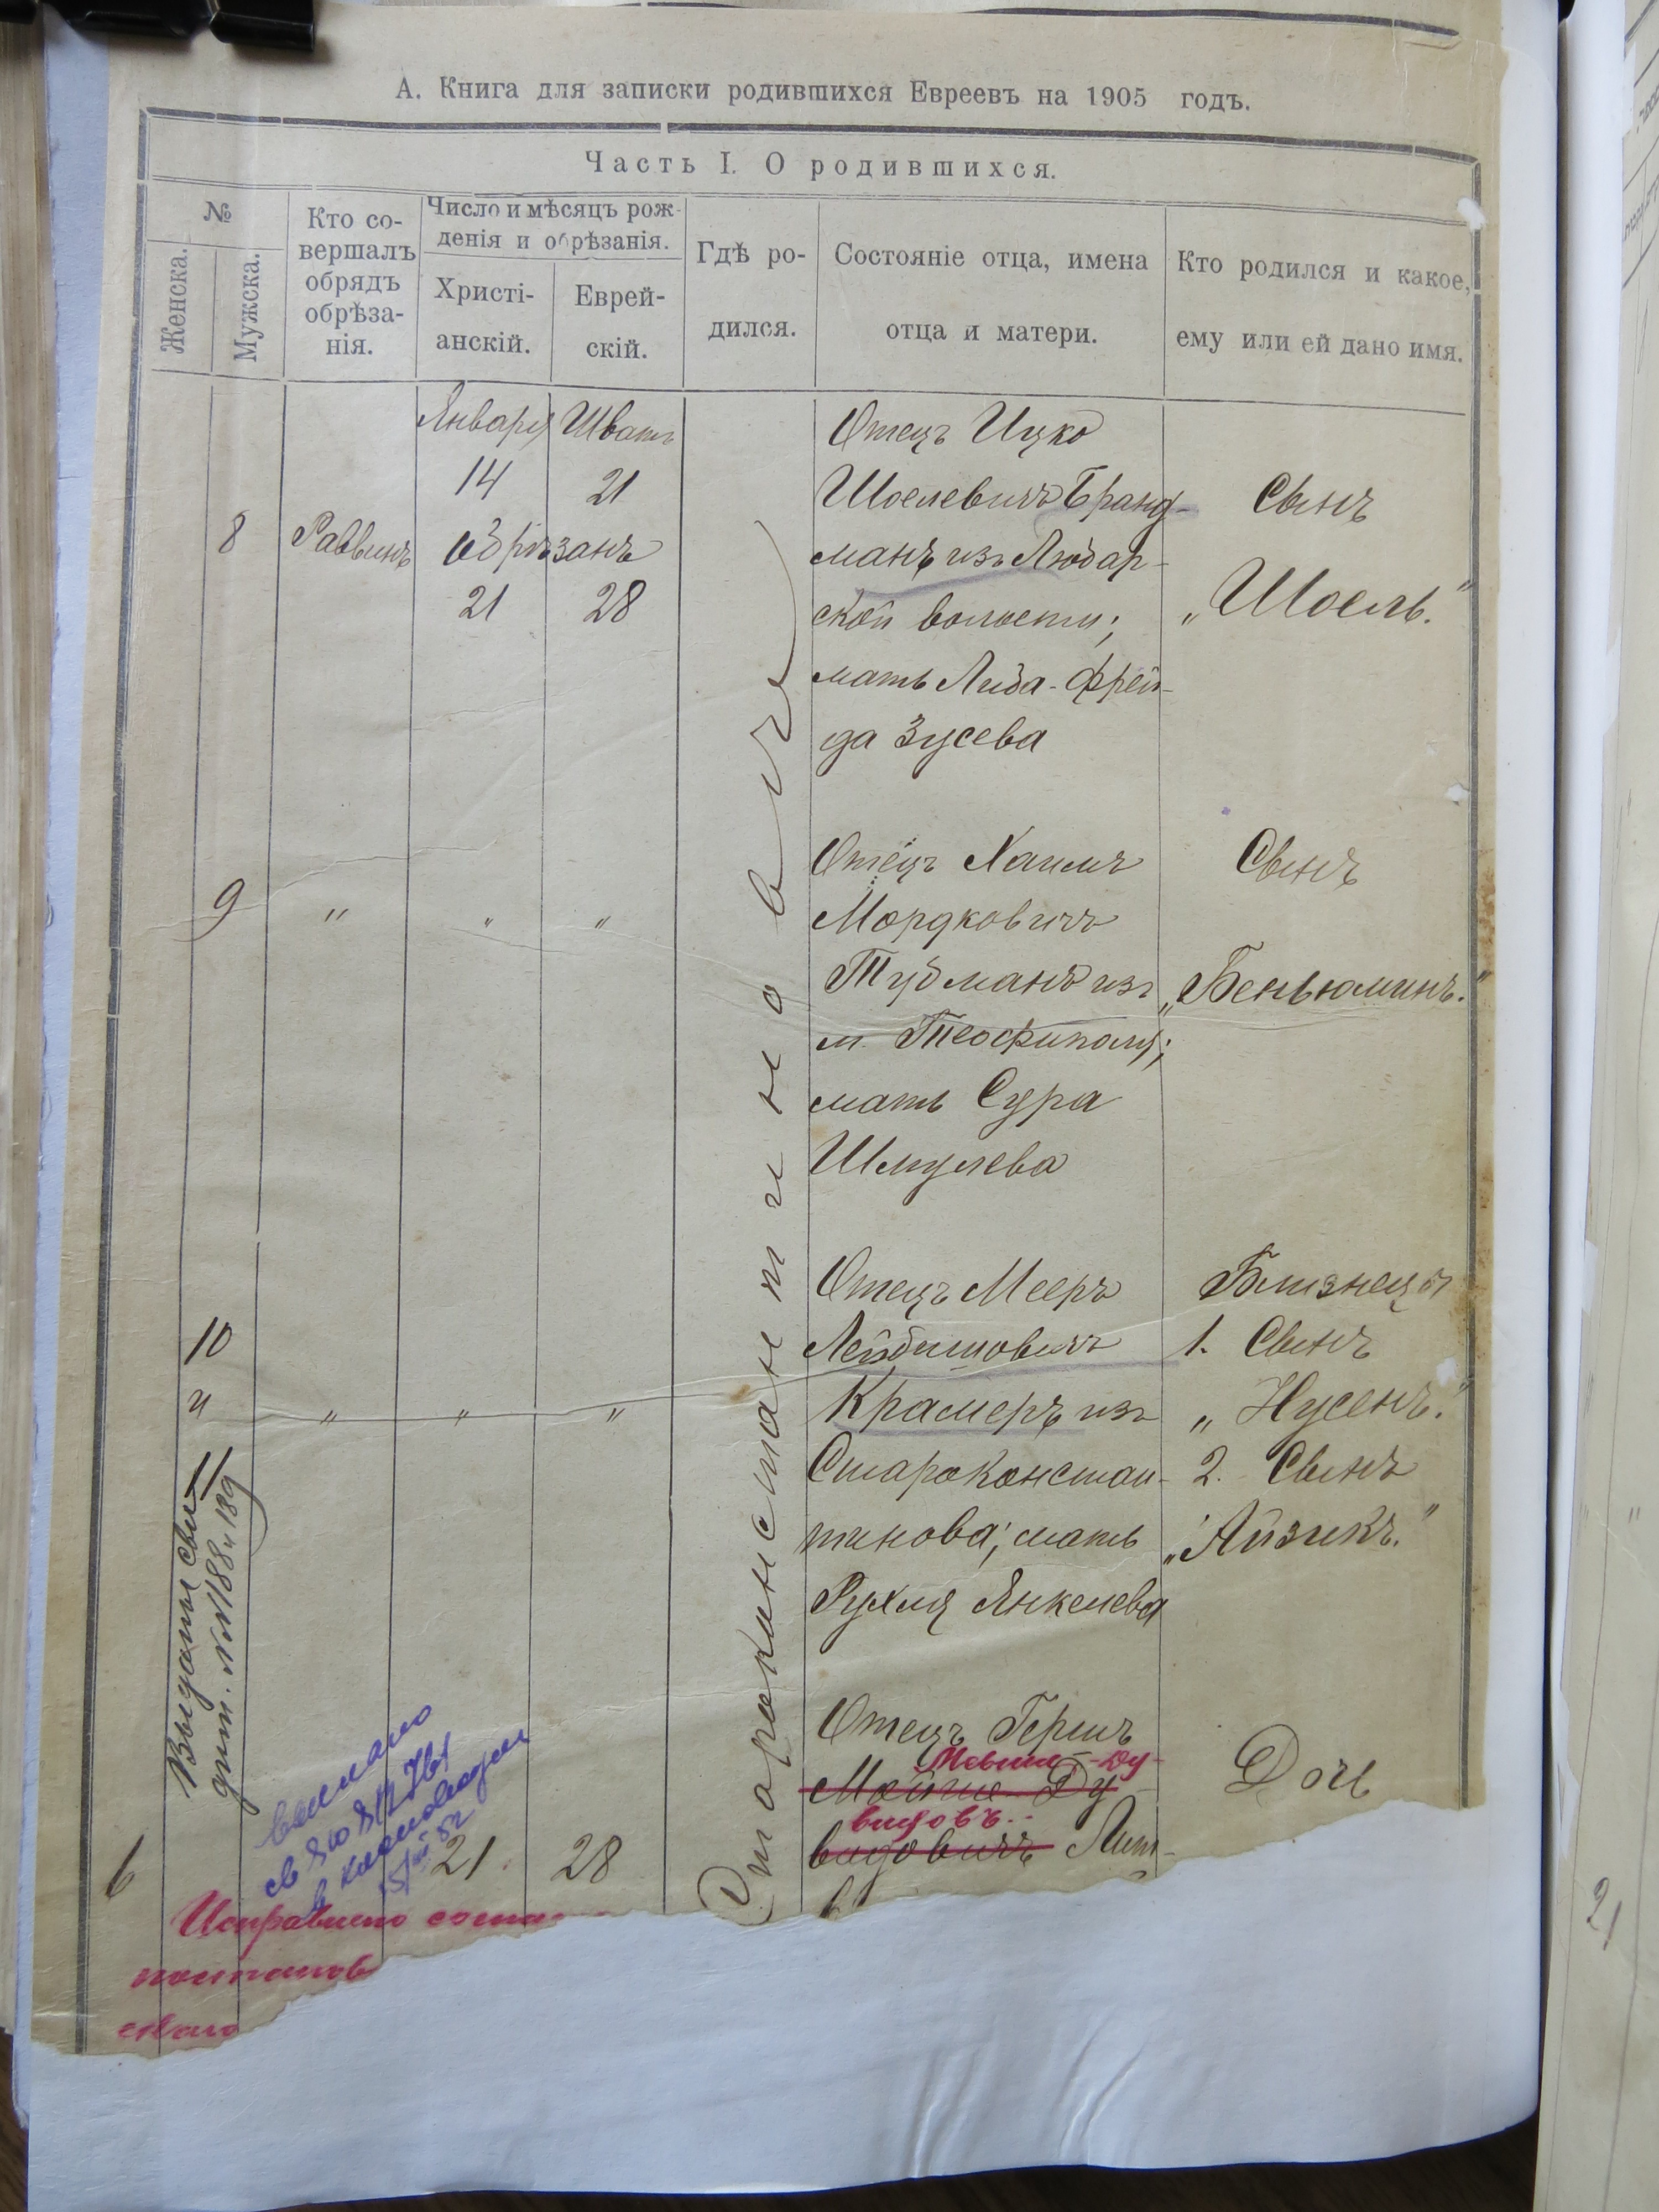 А. Книга для записки родившихся Евреевъ на 1905 годъ.
Часть I. О родившихся.
№
Женска.
Мужска.
Кто со-
вершалъ
обрядъ
обрѣза-
нія.
Число и мѣсяцъ рож-
денія и обрѣзанія.
Христі-
анскій.
Еврей-
скій.
Гдѣ ро-
дился.
Состояніе отца, имена
отца и матери.
Кто родился и какое,
ему или ей дано имя.
8
Раввинъ
Января Шватъ
14 21
обрѣзанъ
21 28
Староконстантиновѣ
Отецъ Ицко
Шоелевичъ Бранд-
манъ изъ Любар-
ской волости;
мать Либа-Фрей-
да Зусева
Сынъ
„Шоель."
9
" " "
Отецъ Хаимъ
Мордковичъ
Тубманъ изъ
м. Теофиполя;
мать Сура
Шмулева
Сынъ
„Беньюминъ."
10
и
11
" " "
Отецъ Мееръ
Лейбишовичъ
Крамеръ изъ
Староконстан-
тинова; мать
Рухля Янкелева
Близнецы
1. Сынъ
„Нусенъ."
2. Сынъ
„Айзикъ."
Выданы сви
дѣт. №№ 188 и 189
6
21 28
Отецъ Гершъ
Мовша-Ду-
Мойше-Ду
видовъ.
видовичъ Лит-
Дочь
выдано
св
Исправлено
постановл